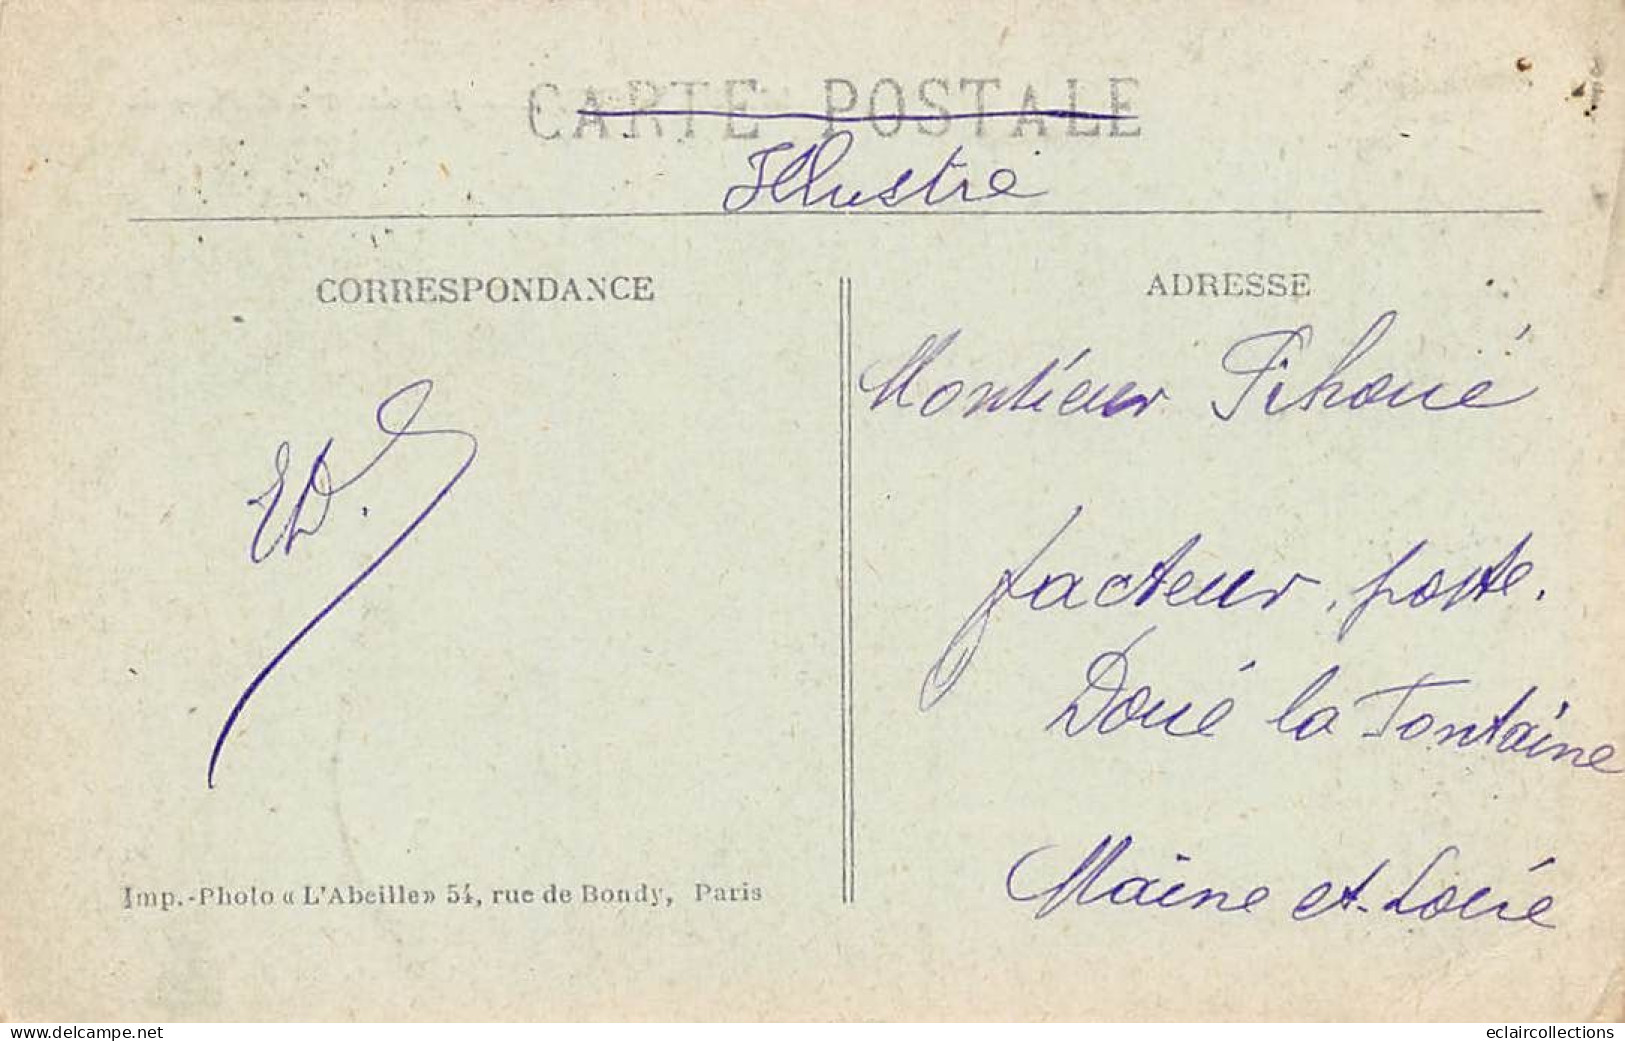 CARTE POSTALE
Illustré
CORRESPONDANCE
ADRESSE
ED.
Monsieur Fihoué
facteur, poste.
Doué la Fontaine
Maine et Loire
Imp.-Photo « L'Abeille» 54, rue de Bondy, Paris
www.delcampe.net
eclaircollections